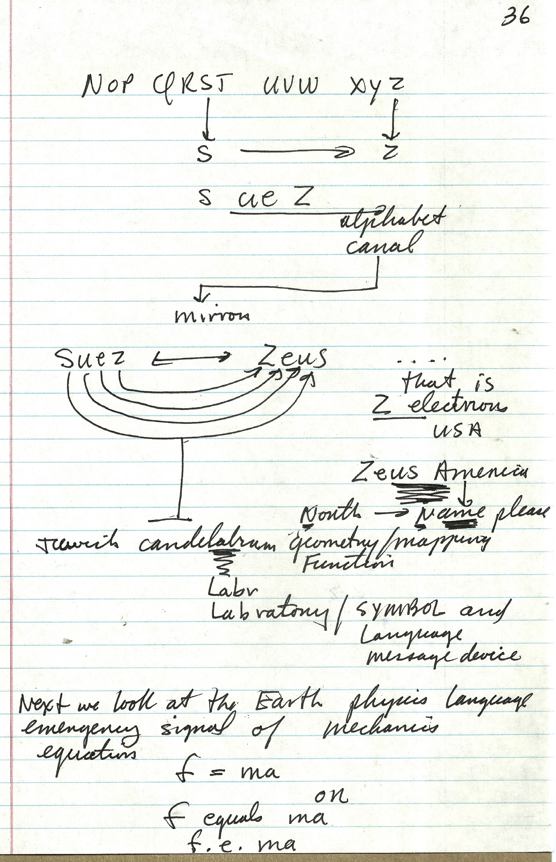 36
NOP QRST UVW XYZ
S Z
S ue Z
alphabet
canal
mirror
Suez Zeus
....
that is
Z electrons
USA
Zeus America
North → Name please
Jewish candelabrum geometry/mapping
Function
Labr
Labratory / SYMBOL and
Language
message device
Next we look at the Earth physics Language
emergency signal of mechanics
equation
f = ma
or
f equals ma
f.e. ma